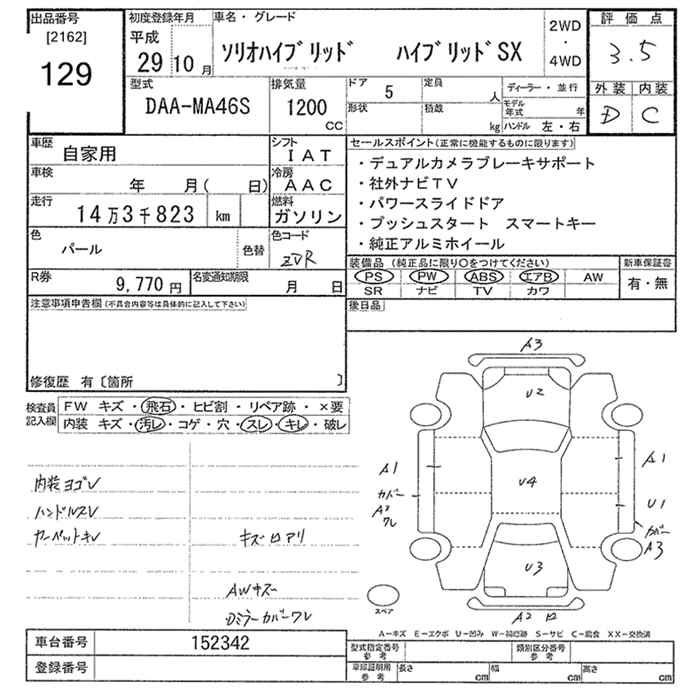 出品番号
[2162]
129
初度登録年月
平成
29年10月
車名・グレード
ソリオハイブリッド ハイブリッドSX
2WD
・
4WD
評価点
3.5
外装 内装
D C
型式
DAA-MA46S
排気量
1200
CC
ドア 5
定員 人
形状
積載 kg
ディーラー・並行
モデル年式 年
ハンドル 左・右
車歴
自家用
シフト
IAT
車検
年 月( 日)
冷房
AAC
走行
14万3千823 km
燃料
ガソリン
色
パール
色替
色コード
ZVR
R券
9,770円
名変通知期限
月 日
セールスポイント(正常に機能するものに限ります)
・デュアルカメラブレーキサポート
・社外ナビTV
・パワースライドドア
・プッシュスタート スマートキー
・純正アルミホイール
装備品(純正品に限り○をつけてください)
PS PW ABS エアB AW
SR ナビ TV カワ
新車保証書
有・無
後日品
注意事項申告欄(不具合内容等は具体的に記入して下さい)
修復歴 有〔箇所 〕
検査員記入欄
FW キズ・飛石・ヒビ割・リペア跡・×要
内装 キズ・汚レ・コゲ・穴・スレ・キレ・破レ
内装ヨゴV
ハンドルスV
カーペットキV
キズロアリ
AWキズー
Dミラーカバーワレ
A3
U2
A1
A1
U4
カバー
A2
ワレ
U1
カバー
A3
U3
スペア
A2 ロ
A-キズ E-エクボ U-凹み W-補修跡 S-サビ C-腐食 XX-交換済
車台番号
152342
登録番号
型式指定番号
参考
類別区分番号
参考
車庫証明用
参考
長さ cm
幅 cm
高さ cm